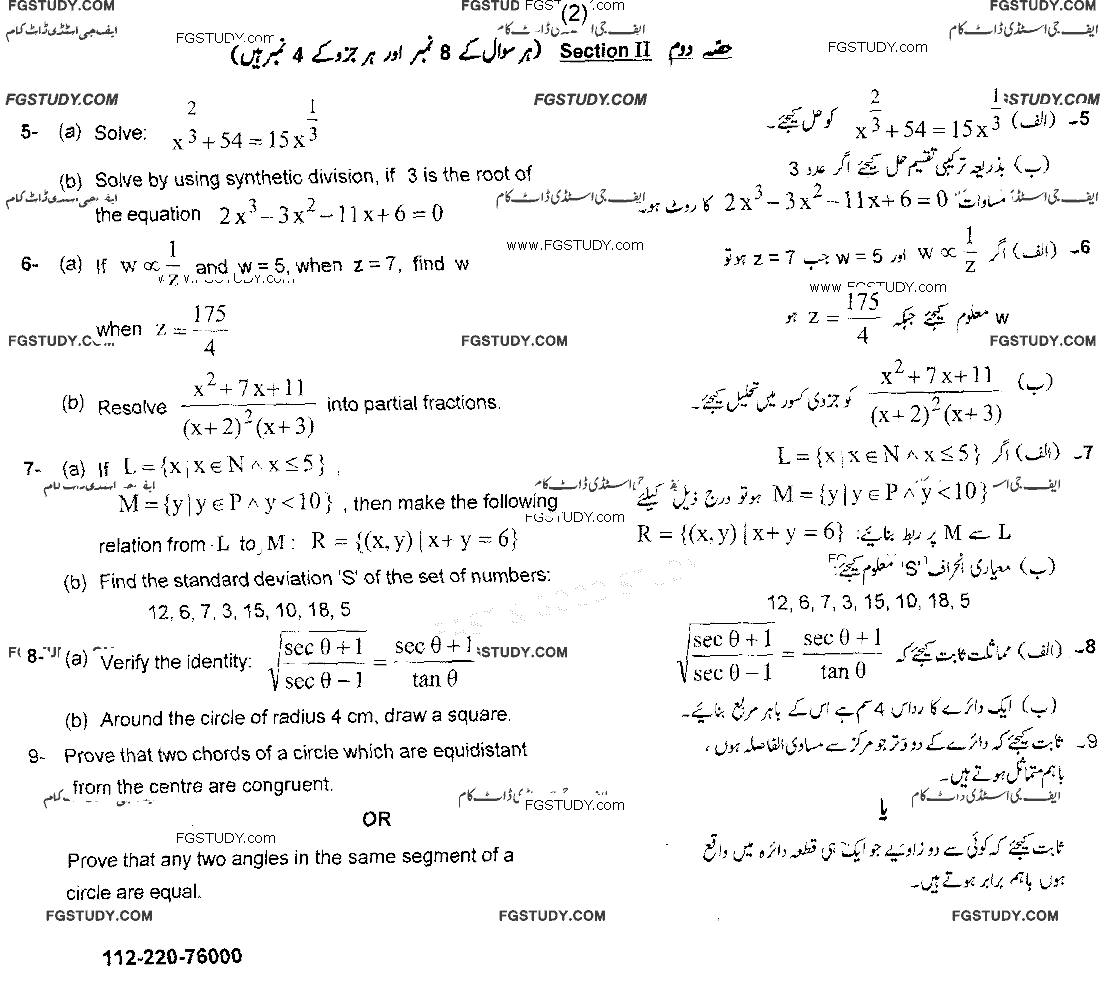 FGSTUDY.COM FGSTUD FGST .com FGSTUDY.COM
(2)
ایف جی اسٹڈی ڈاٹ کام
FGSTUDY.com
FGSTUDY.com
حصہ دوم Section II (ہر سوال کے 8 نمبر اور ہر جزو کے 4 نمبر ہیں)
FGSTUDY.COM FGSTUDY.COM STUDY.COM
5- (a) Solve: x^{2/3} + 54 = 15x^{1/3}
5۔ (الف) x^{2/3} + 54 = 15x^{1/3} کو حل کیجئے۔
(b) Solve by using synthetic division, if 3 is the root of
the equation 2x³ − 3x² − 11x + 6 = 0
(ب) بذریعہ ترکیبی تقسیم حل کیجئے اگر عدد 3
مساوات 2x³ − 3x² − 11x + 6 = 0 کا روٹ ہو۔
www.FGSTUDY.com
6- (a) If w ∝ 1/z and w = 5, when z = 7, find w
when z = 175/4
6۔ (الف) اگر w ∝ 1/z اور w = 5 جب z = 7 ہو تو
w معلوم کیجئے جبکہ z = 175/4 ہو
FGSTUDY.COM FGSTUDY.COM
(b) Resolve (x² + 7x + 11)/((x + 2)²(x + 3)) into partial fractions.
(ب) (x² + 7x + 11)/((x + 2)²(x + 3)) کو جزوی کسور میں تحلیل کیجئے۔
7- (a) If L = {x | x ∈ N ∧ x ≤ 5} ,
M = {y | y ∈ P ∧ y < 10} , then make the following
relation from L to M : R = {(x, y) | x + y = 6}
7۔ (الف) اگر L = {x | x ∈ N ∧ x ≤ 5}
M = {y | y ∈ P ∧ y < 10} ہو تو درج ذیل کیلئے
L سے M پر ربط بنائیے: R = {(x, y) | x + y = 6}
FGSTUDY.com
(b) Find the standard deviation 'S' of the set of numbers:
12, 6, 7, 3, 15, 10, 18, 5
(ب) معیاری انحراف 'S' معلوم کیجئے:
12, 6, 7, 3, 15, 10, 18, 5
8- (a) Verify the identity: √((sec θ + 1)/(sec θ − 1)) = (sec θ + 1)/tan θ
STUDY.COM
8۔ (الف) مماثلت ثابت کیجئے کہ √((sec θ + 1)/(sec θ − 1)) = (sec θ + 1)/tan θ
(b) Around the circle of radius 4 cm, draw a square.
(ب) ایک دائرے کا رداس 4 سم ہے اس کے باہر مربع بنائیے۔
9- Prove that two chords of a circle which are equidistant
from the centre are congruent.
9۔ ثابت کیجئے کہ دائرے کے دو وتر جو مرکز سے مساوی الفاصلہ ہوں ،
باہم متماثل ہوتے ہیں۔
ایف جی اسٹڈی ڈاٹ کام
FGSTUDY.com
OR
یا
FGSTUDY.com
Prove that any two angles in the same segment of a
circle are equal.
ثابت کیجئے کہ کوئی سے دو زاویے جو ایک ہی قطعہ دائرہ میں واقع
ہوں باہم برابر ہوتے ہیں۔
FGSTUDY.COM FGSTUDY.COM FGSTUDY.COM
112-220-76000